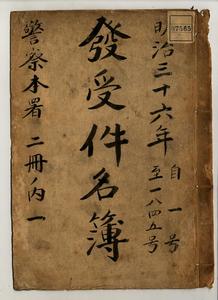 明治三十六年
自一号
至一八四五号
發受件名簿
警察本署 二冊ノ内一